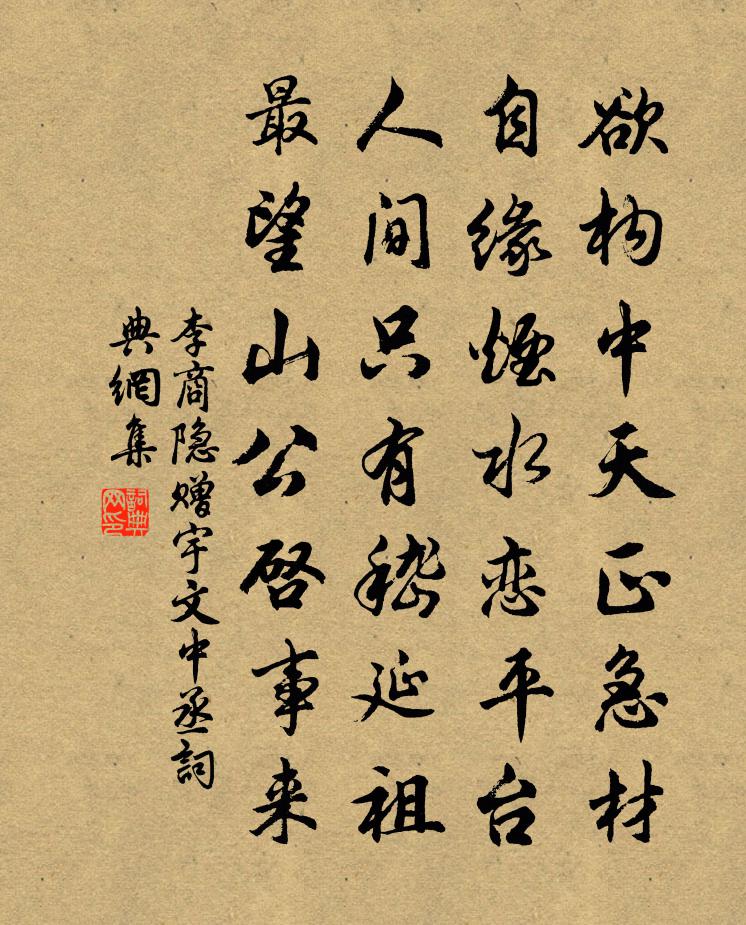 欲构中天正急材
自缘烟水恋平台
人间只有嵇延祖
最望山公启事来
李商隐赠宇文中丞詞
典網集
詞典網印